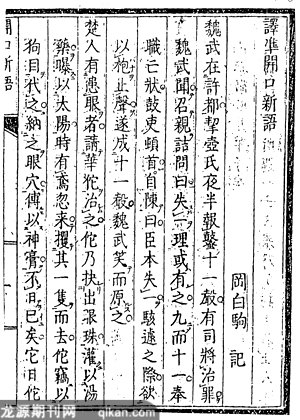 譯準開口新語
岡白駒 記
魏武在許都挈壺氏夜半報鼜十一有司將治罪
魏武聞召親詰問曰失一理或有之九而十一奉
職亡狀鼓吏頓首自陳曰臣本失一駭遽之際欲
以枹止聲遂成十一魏武笑而原之
楚人有患眼者請華佗治之佗乃抉出眼珠灌以湯
藥曝以太陽時有鳶忽來攫其一隻而去佗竊以
狗目代之納之眼穴傅以神膏不日已矣它日佗
開口新語
龙源期刊网 qikan.com